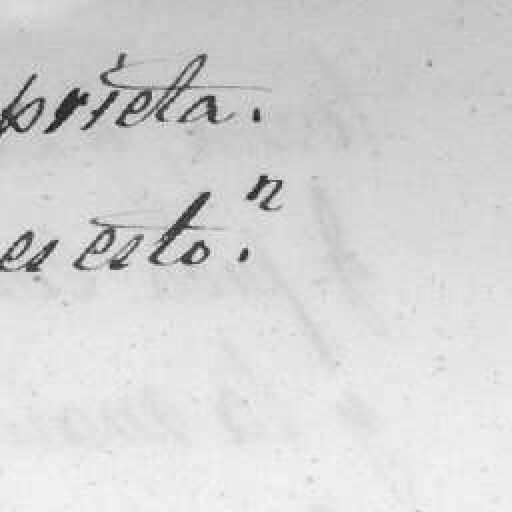 prieta.
es esto.n